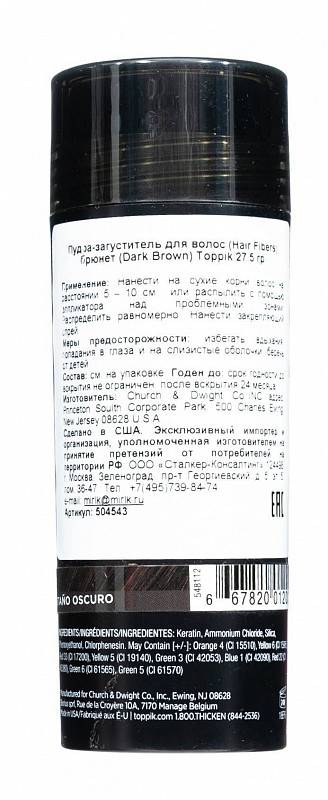 Пудра-загуститель для волос (Hair Fibers)
брюнет (Dark Brown) Toppik 27.5 гр
Применение: нанести на сухие корни волос на
расстоянии 5 – 10 см или распылить с помощью
аппликатора над проблемными зонами
Распределить равномерно Нанести закрепляющий
спрей
Меры предосторожности: избегать вдыхания
попадания в глаза и на слизистые оболочки беречь
от детей
Состав: см. на упаковке Годен до: срок годности до
вскрытия не ограничен после вскрытия 24 месяца
Изготовитель: Church & Dwight Co INC адрес
Princeton South Corporate Park 500 Charles Ewing
New Jersey 08628 U.S.A
Сделано в США. Эксклюзивный импортер и
организация, уполномоченная изготовителем на
принятие претензий от потребителей на
территории РФ ООО «Сталкер-Консалтинг» 124498
г. Москва, Зеленоград пр-т Георгиевский д. 5 эт.5
пом 36-47 Тел +7(495)739-84-74
e-mail: mirlk@mirlk.ru
Артикул: 504543
EAC
548112
TAÑO OSCURO
6 67820 0120
INGREDIENTS/INGRÉDIENTS/INGREDIENTES: Keratin, Ammonium Chloride, Silica,
Phenoxyethanol, Chlorphenesin. May Contain [+/-]: Orange 4 (CI 15510), Yellow 6 (CI
Red 33 (CI 17200), Yellow 5 (CI 19140), Green 3 (CI 42053), Blue 1 (CI 42090), Red
Green 6 (CI 61565), Green 5 (CI 61570)
Manufactured for Church & Dwight Co., Inc., Ewing, NJ 08628
sprl. Rue de la Croyère 10A, 7170 Manage Belgium
Made in USA/Fabriqué aux E-U | toppik.com 1.800.THICKEN (844-2536)